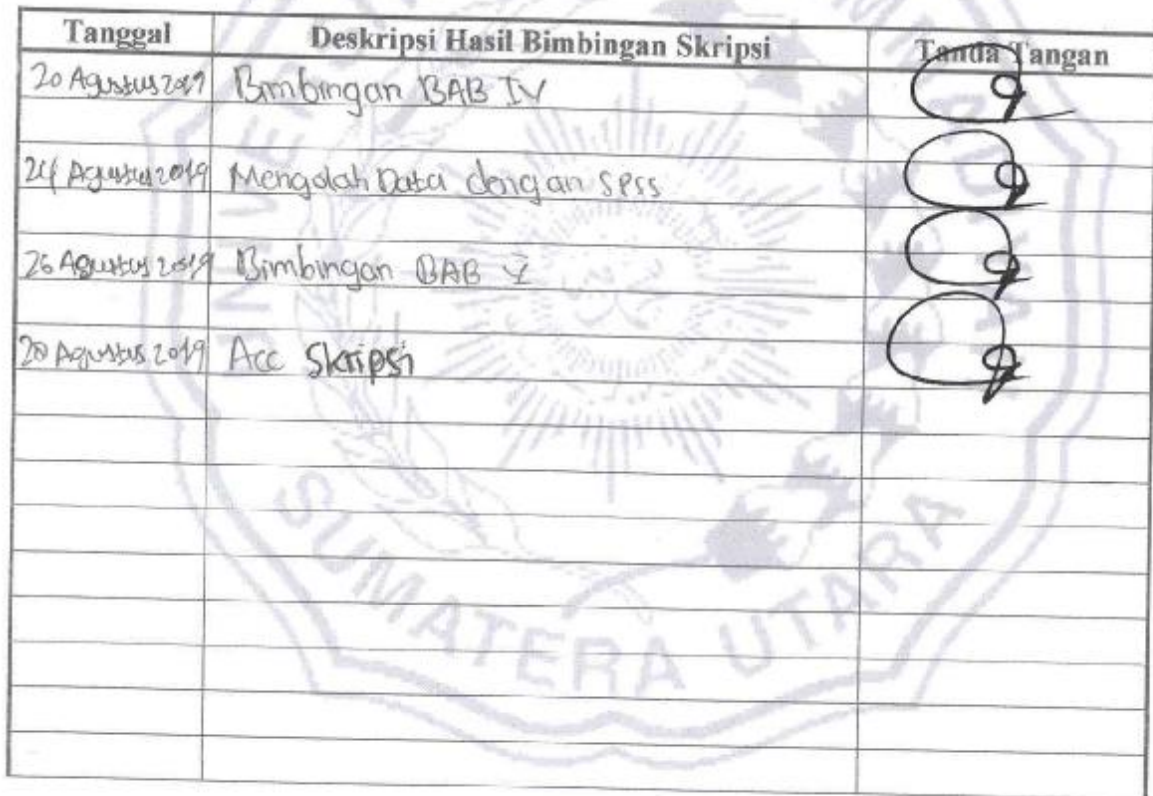 Tanggal Deskripsi Hasil Bimbingan Skripsi Tanda Tangan
20 Agustus 2019 Bimbingan BAB IV
24 Agustus 2019 Mengolah Data dengan SPSS
26 Agustus 2019 Bimbingan BAB V
28 Agustus 2019 Acc Skripsi
SUMATERA UTARA